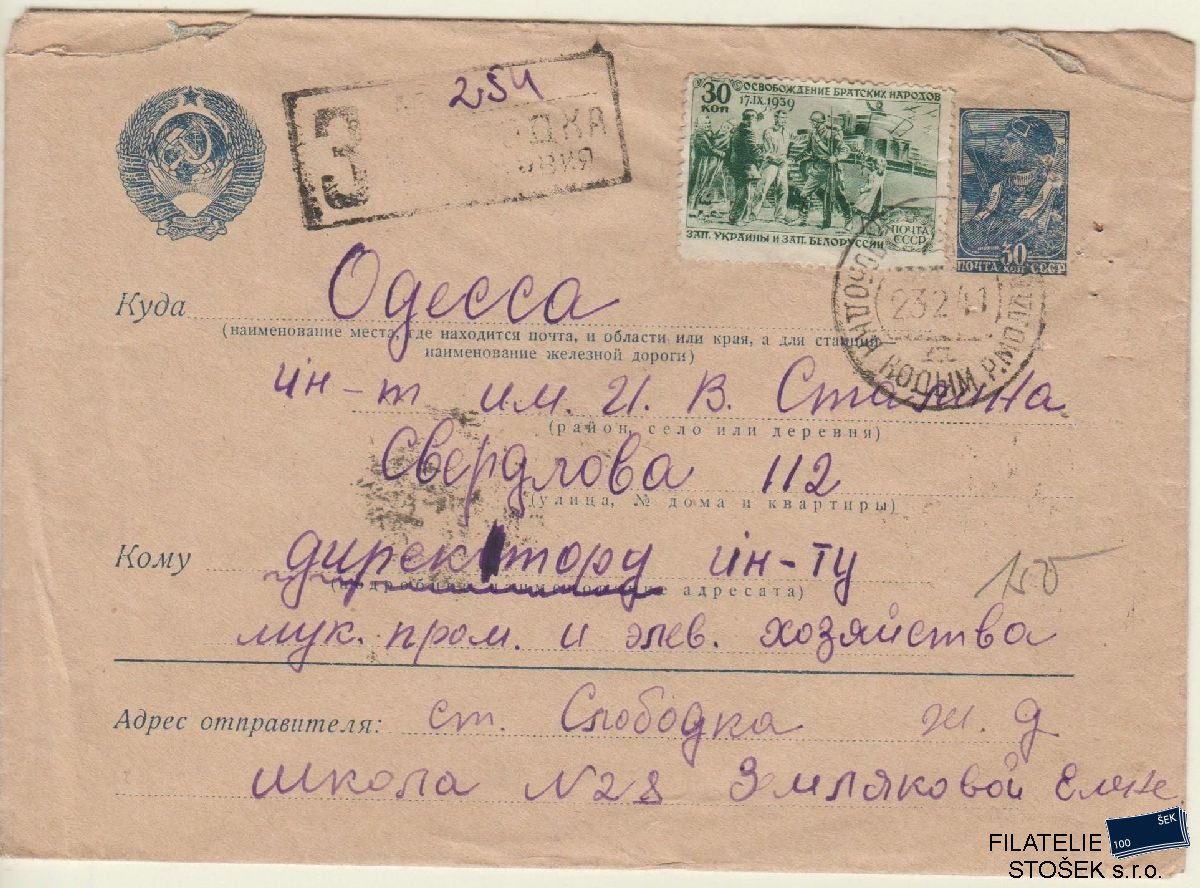 254
З
ДКА
ВИЯ
30
КОП
ОСВОБОЖДЕНИЕ БРАТСКИХ НАРОДОВ
17.IX.1939
ЗАП. УКРАИНЫ И ЗАП. БЕЛОРУССИИ
ПОЧТА
СССР
30
ПОЧТА КОП СССР
23 2 41
КОДЫМ
Куда Одесса
(наименование места, где находится почта, и области или края, а для станций
наименование железной дороги)
ин-т им. И. В. Сталина
(район, село или деревня)
Свердлова 112
(улица, № дома и квартиры)
Кому директору ин-ту
(подробное наименование адресата)
мук. пром. и элев. хозяйства
150
Адрес отправителя: ст. Слободка ж. д
школа N28 Земляковой Елене
FILATELIE
STOŠEK s.r.o.
100
ŠEK